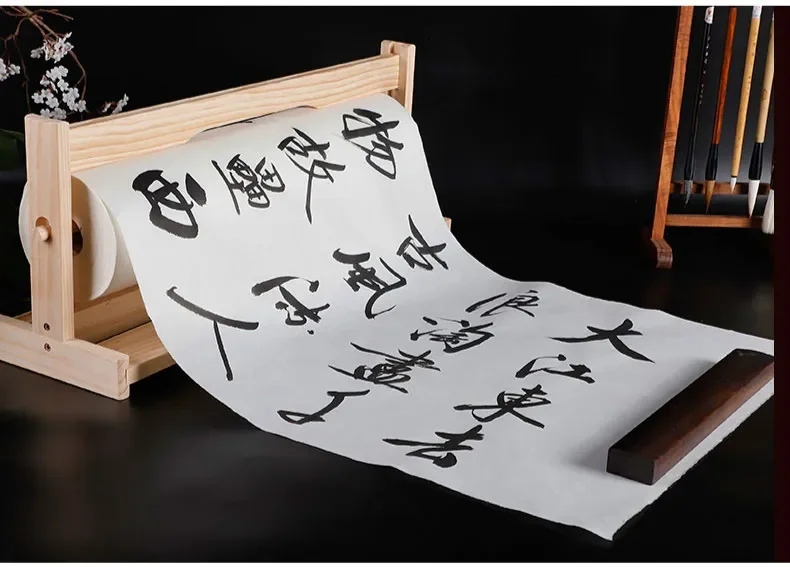 大江東去
浪淘盡千
古風流人
物故壘西